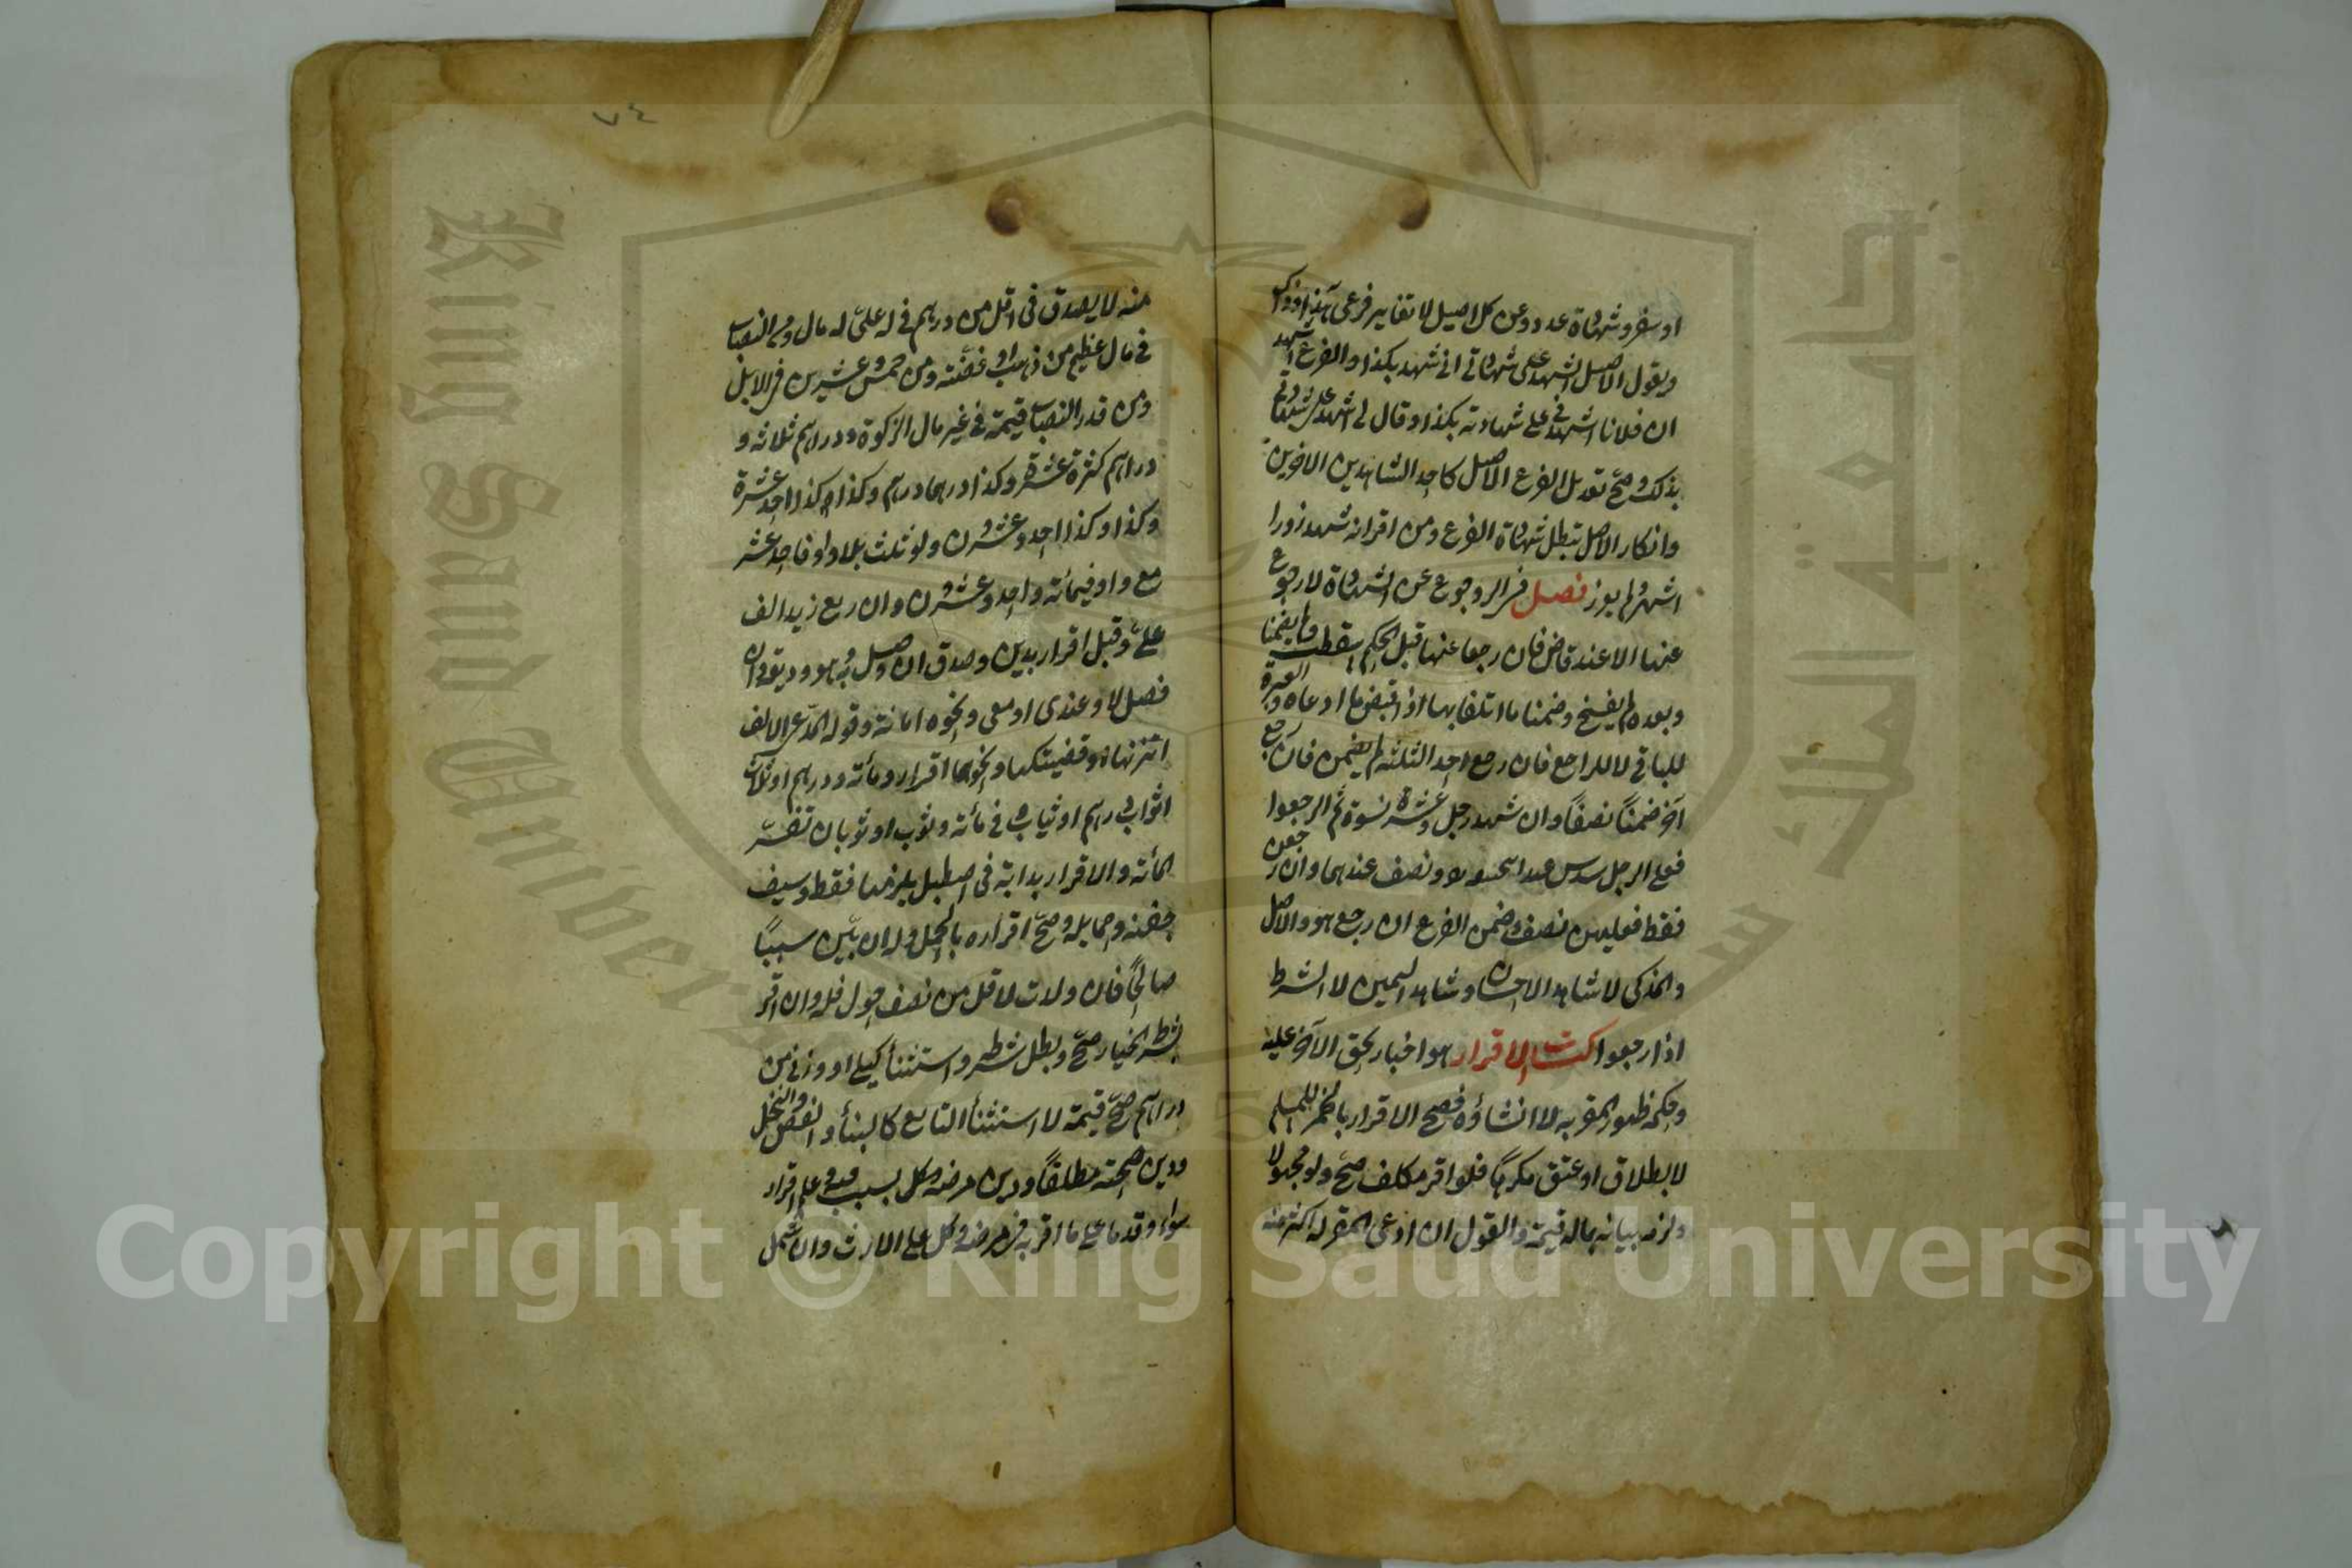 او سفر وشهادة عدد وعن كل اصيل لا تغاير فرعى هذا وذاك
ويقول الاصل اشهد على شهادتى انى شهد بكذا والفرع اشهد
ان فلانا اشهدنى على شهادته بكذا وقال لى اشهد على شهادتى
بذلك وصح تعديل الفرع الاصل كاحد الشاهدين الاخرين
وانكار الاصل تبطل شهادة الفرع ومن اقر انه شهد زورا
اشهر ولم يعزر فصل فى الرجوع عن الشهادة لا رجوع
عنها الا عند قاض فان رجعا عنها قبل الحكم سقطت ولم يضمنا
وبعده لم يفسخ وضمنا ما اتلفا بها اذا قبض ما ادعاه والعبرة
للباقى لا للراجع فان رجع احد الثلثة لم يضمن فان رجع
آخر ضمنا نصفا وان شهد رجل وعشرة نسوة ثم الرجعوا
فعلى الرجل سدس عند ابى حنيفة ونصف عندهما وان رجعن
فقط فعليهن نصف وضمن الفرع ان رجع هو والاصل
والمذكى لا شاهد الاحصان وشاهد اليمين لا الشرط
اذا رجعوا كتاب الاقرار هو اخبار بحق الآخر عليه
وحكمه ظهور المقر به لا انشاؤه فصح الاقرار بالخمر للمسلم
لا بطلاق او عتق مكرها فلو اقر مكلف صح ولو مجهولا
ولزمه بيانه بماله قيمة والقول ان ادعى المقر له اكثر منه
٧٤
منه لا يصدق فى اقل من درهم فى له على له مال ومن النصاب
فى مال عظيم من ذهب او فضة ومن خمس وعشرين فى الابل
ومن قدر النصاب قيمة فى غير مال الزكوة ودراهم ثلاثة و
دراهم كثرة عشرة وكذا درهما درهم وكذا كذا احد عشرة
وكذا وكذا احد وعشرون ولو ثلث بلا واو فاحد عشر
مع واو فمائة واحد وعشرون وان ربع زيد الف
على وقبل اقرار بدين وصدق ان وصل به هو وديعة وان
فصل لا وعندى او معى ونحوه امانة وقوله لمدعى الالف
اتزنها او قضيتكها ونحوها اقرار ومائة ودرهم او ثلاثة
اثواب دراهم او ثياب فى مائة وثوب او ثوبان تفسر
المائة والاقرار بدابة فى اصطبل يلزمها فقط وسيف
جفنه وحمايله وصح اقراره بالحمل وله ان بين سببا
صالحا فان ولدت لاقل من نصف حول فله وان اقر
بشرط الخيار صح وبطل شرطه واستثنا كيلى او وزنى من
دراهم صح قيمة لا استثنا التابع كالبنأ والفص والنخل
ودين صحته مطلقا ودين مرضه وكل بسبب فيه وعلم اقرار
سواء وقدما على ما اقر به فى مرضه وكل على الارث وان شمل